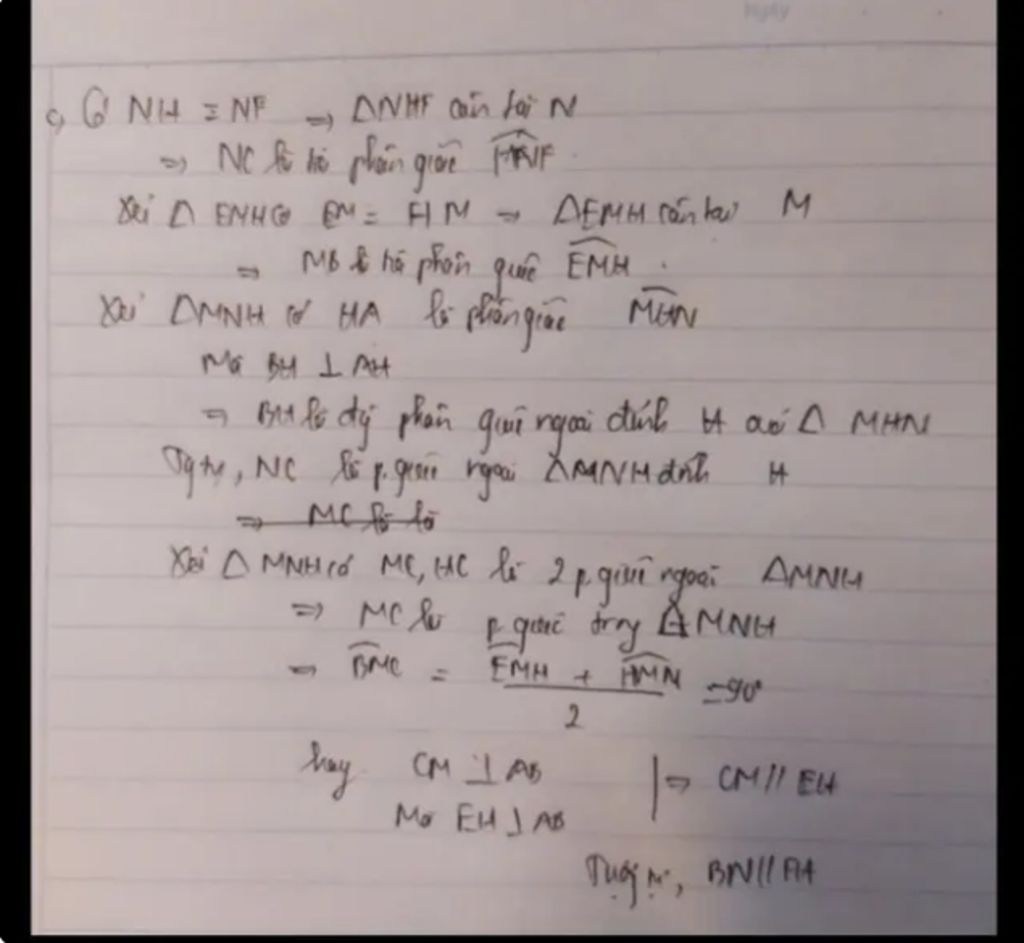 c, Có NH = NF => ΔNHF cân tại N
=> NC là tia phân giác HNF
Xét Δ EMH có EM = HM => ΔEMH cân tại M
=> MB là tia phân giác EMH.
Xét ΔMNH có HA là phân giác MHN
Mà BH ⊥ AH
=> BH là đg phân giác ngoài đỉnh H của Δ MHN
Tg tự, NC là p.giác ngoài ΔMNH đỉnh H
=> MC là
Xét Δ MNH có MC, HC là 2 p.giác ngoài ΔMNH
=> MC là p.giác trong ΔMNH
=> BMC = EMH + HMN = 90°
2
hay CM ⊥ AB => CM // EH
Mà EH ⊥ AB
Tương tự, BN // FH